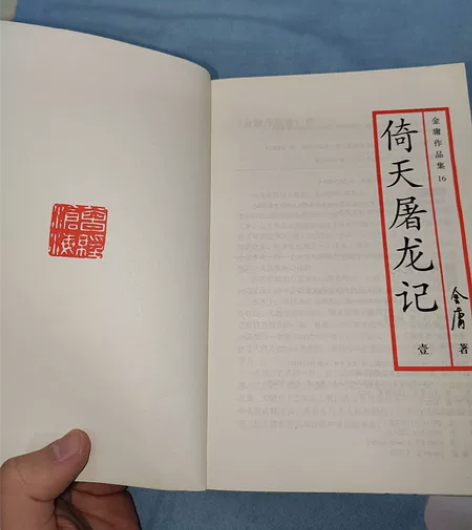 曾經滄海
金庸作品集 16
倚天屠龙记
壹
金庸 著